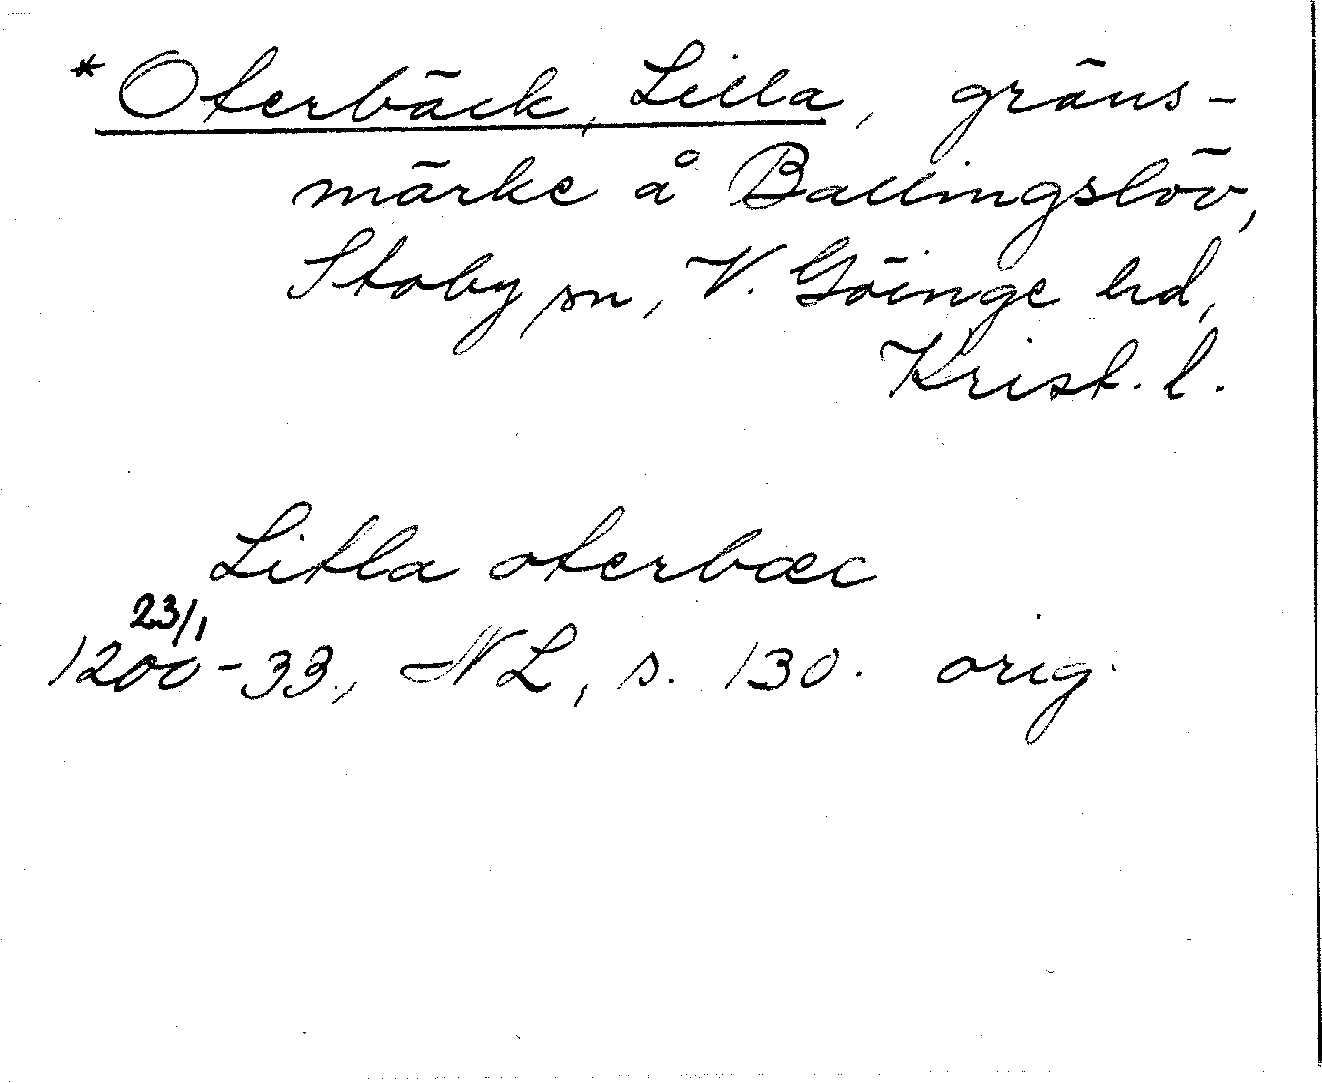 * Oterbäck, Lilla, gräns-
märke å Ballingslöv,
Stoby sn, V. Göinge hd,
Krist. l.
Litla oterbæc
23/1
1200-33, NL, s. 130. orig.